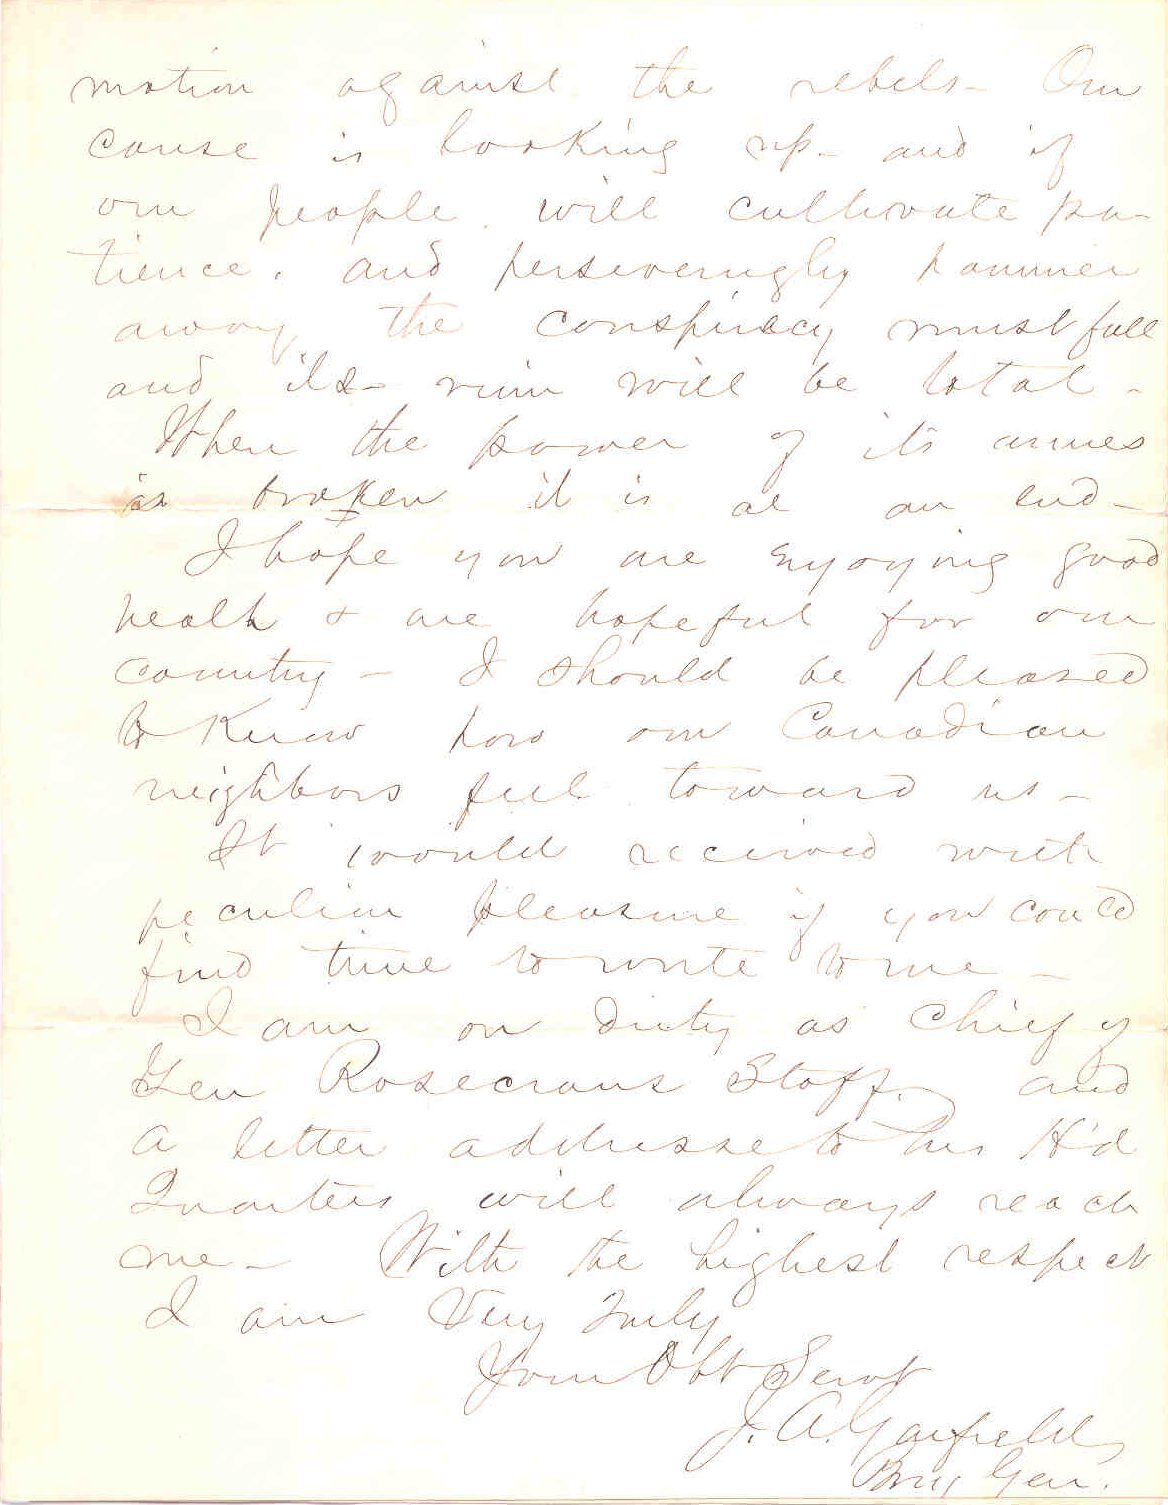 motion against the rebels - Our
cause is looking up - and if
our people will cultivate pa-
tience, and perseveringly hammer
away the conspiracy must fall
and its ruin will be total -
When the power of its armies
is broken it is at an end -
I hope you are enjoying good
health & are hopeful for our
country - I should be pleased
to know how our Canadian
neighbors feel toward us -
It would recieved with
peculiar pleasure if you could
find time to write to me -
I am on duty as Chief of
Gen Rosecrans Staff. and
a letter addresse to his H'd
Quarters will always reach
me - With the highest respect
I am Very Truly
Your Obt Servt
J. A. Garfield,
Brig Gen.